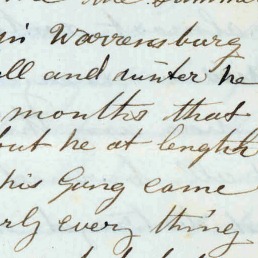 the Summer
in Warrensburg
and winter he
months that
but he at lenght
his Gang came
every thing